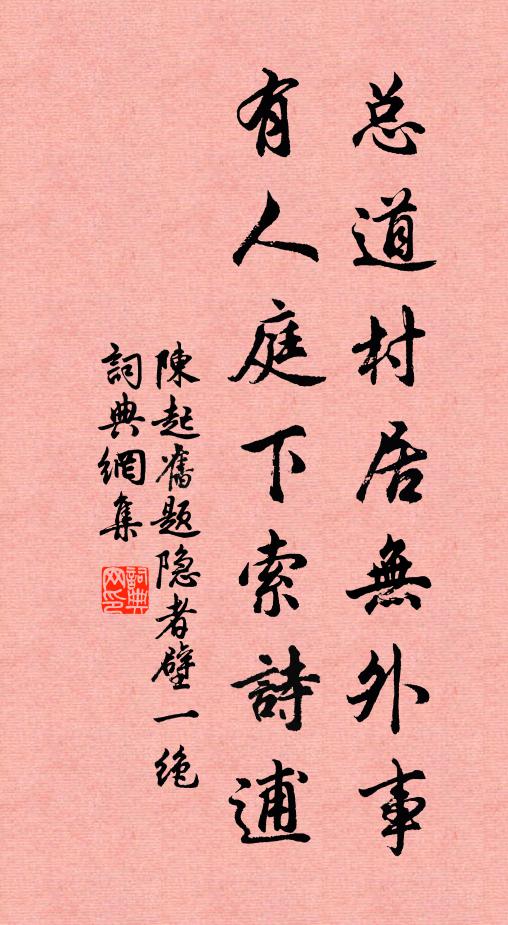 总道村居無外事
有人庭下索詩逋
陳起舊题隐者壁一绝
詞典網集
詞典网印